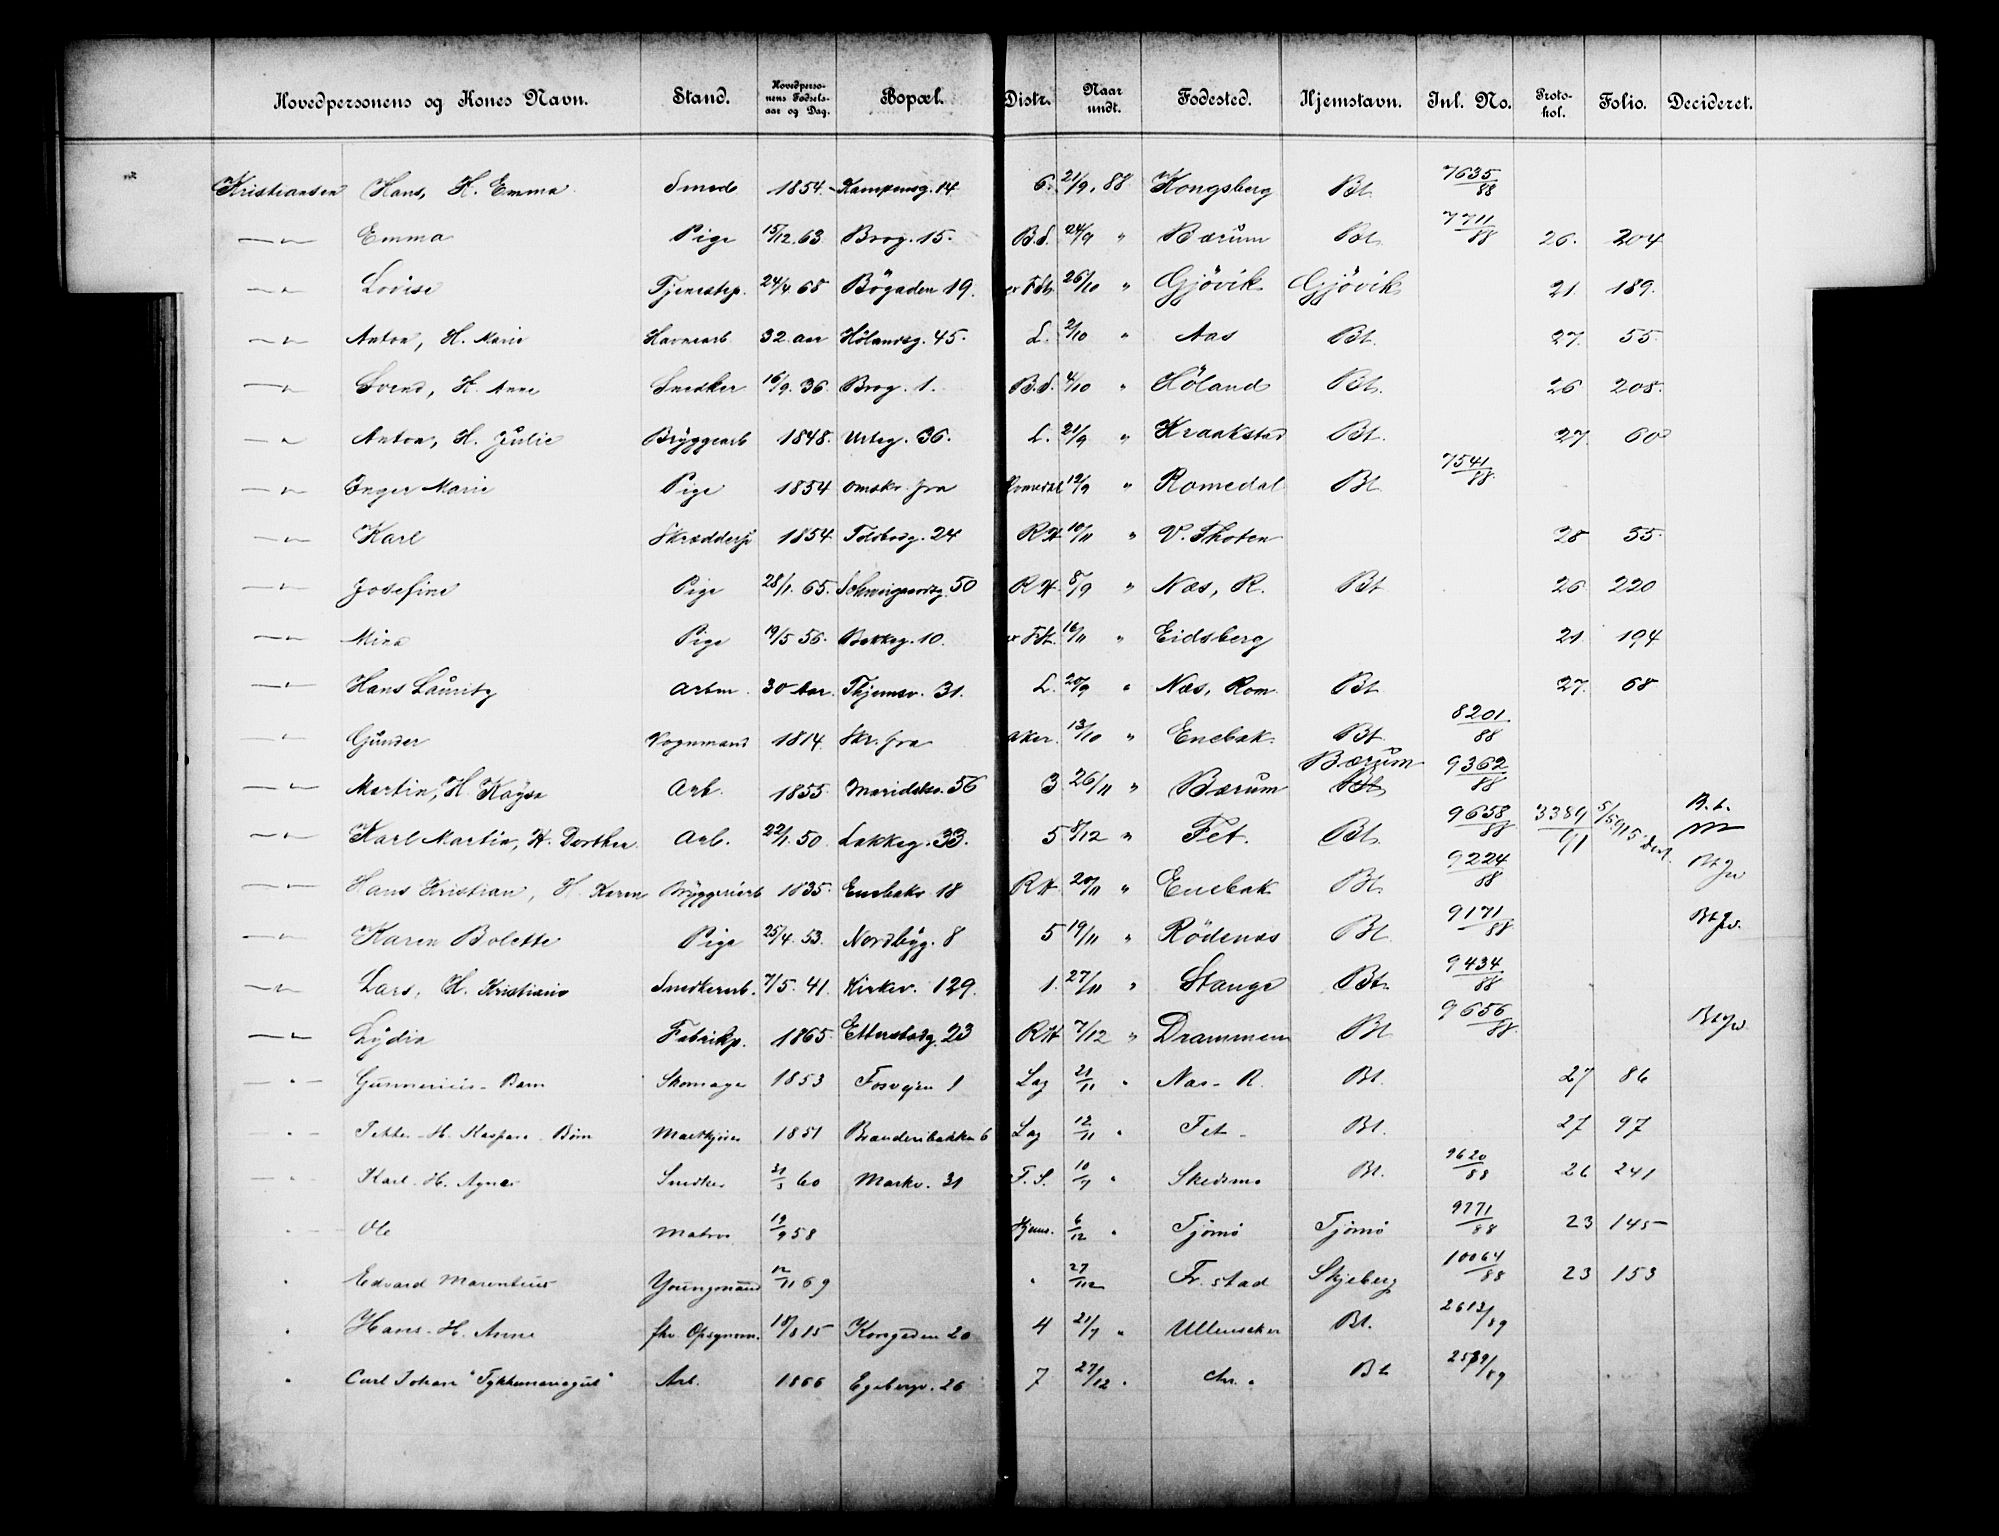 Hovedpersonens og Kones Navn. Stand. Hovedpersonens Fødselsaar og Dag. Bopæl. Distr. Naar undt. Fødested. Hjemstavn. Inl. No. Protokol. Folio. Decideret.
Kristiansen Hans, H. Emma Smed 1854. Kampensg. 14 6. 21/9. 88 Kongsberg Bt. 7635/88
—"— Emma Pige 15/12. 63 Brog. 15. B.S. 24/9 " Bærum Bt. 7711/88 26. 204
—"— Lovise Tjenestep. 24/4. 68 Bögaden 19. 26/10 " Gjövik Gjövik 21. 189.
—"— Anton, H. Marie Havnearb. 32 aar Hölandsg. 45. L. 2/10 " Aas Bt. 27. 55.
—"— Svend, H. Anne Snedker 16/9. 36. Brog. 1. B.S. 4/10 " Höland Bt. 26 208.
—"— Anton, H. Julie Bryggearb 1848. Urteg. 36. L. 21/9 " Kraakstad Bt. 27. 60
—"— Inger Marie Pige 1854 omskr. fra Romedal 19/9 " Romedal Bt. 7541/88.
—"— Karl Skræddersv 1854. Toldbodg. 24 R.H. 10/11 " V. Thoten 28 55.
—"— Josefine Pige 28/1. 65. Schweigaardsg. 50 R.H. 8/9 " Næs, R. Bt 26 220
—"— Mina Pige 19/5. 56. Bakkeg. 10. 16/11 " Eidsberg 21. 194
—"— Hans Lauritz Arbm. 30 Aar. Thjemsv. 31. L. 20/9 " Næs, Rom. Bt 27. 68
—"— Gunder Vognmand 1814. Skr. fra Aker. 13/10 " Enebak. Bt. 8201/88
—"— Martin, H. Kaysa Arb. 1855. Maridalsv. 56 3 26/11 " Bærum Bærum Bt. 9362/88
—"— Karl Martin, H. Dorthea. Arb. 22/1. 50. Lakkeg. 33. 5 8/12 " Fet. Bt. 9658/88 3389/91 5/5 915 B.t.
—"— Hans Kristian, H. Karen Bryggeriarb 1835. Enebakv 18 R.H. 20/11 " Enebak Bt. 9224/88
—"— Karen Bolette Pige 25/4. 53. Nordbyg. 8 5 19/11 " Rödenæs Bt. 9171/88
—"— Lars, H. Kristiane Snedkerarb. 7/5. 41. Kirkev. 129. 1. 27/11 " Stange Bt. 9434/88
—"— Lydia Fabrikp. 1865. Etterstadg. 23 R.H. 7/12 " Drammen Bt 9656/88.
—"— Gunnerius - Barn Skomager 1853 1 Lag 21/11 " Næs - R. Bt. 27 86
"— Petter - H. Kaspara - Børn 1851 Branderibakken 6 Lag 12/11 " Fet - Bt. 27 97
—"— Karl - H. Agnes Snedker 31/3 60 Markv. 31 F.S. 10/9 " Skedsmo Bt. 9620/88 26 241
" Ole Matros 19/9 58 Hjems. 6/12 " Tjømø Tjømø 9771/88 23 145
" Edvard Marentius Youngmand 12/11 69 " 27/12 Fr.stad Skjeberg 10064/88 23 153
" Hans - H. Anne fhv. Opsynsm. 15 Korsgaden 20 4 21/7 " Ullensaker Bt. 2613/89
" Carl Johan "Tykkemariagut" Arb. 1866 Egebergv. 26 7 27/12 " Chr. " Bt